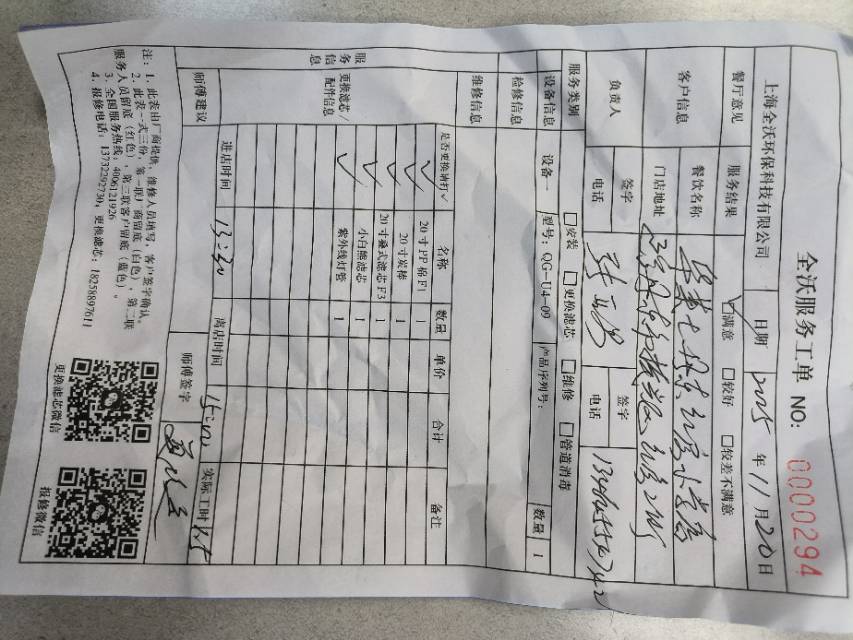 全沃服务工单 NO: 0000294
上海全沃环保科技有限公司 日期 2025 年 11 月 20 日
餐厅意见 服务结果 ☑满意 □较好 □较差不满意
客户信息 餐饮名称
门店地址
负责人 签字 签字
电话 电话
服务类别 □安装 □更换滤芯 □维修 □管道消毒
设备信息 设备一 型号: QG-U4-09 产品序列号: 数量 1
检修信息
维修信息
服务信息 更换滤芯/配件信息
是否更换请打√ 名称 数量 单价 合计 备注
√ 20寸PP棉F1 1
√ 20寸炭棒 1
√ 20寸叠式滤芯F3 1
√ 小白熊滤芯 1
√ 紫外线灯管 1
进店时间 13:30 离店时间 15:00 实际工时 1.5
师傅建议 师傅签字
注: 1、此表由厂商提供, 维修人员填写, 客户签字确认。
2、此表一式三份, 第一联厂商留底 (白色), 第二联
服务人员留底 (红色), 第三联客户留底 (蓝色)。
3、全国服务热线: 4006121926
4、报修电话: 13732292730, 更换滤芯: 18258897611
更换滤芯微信 报修微信